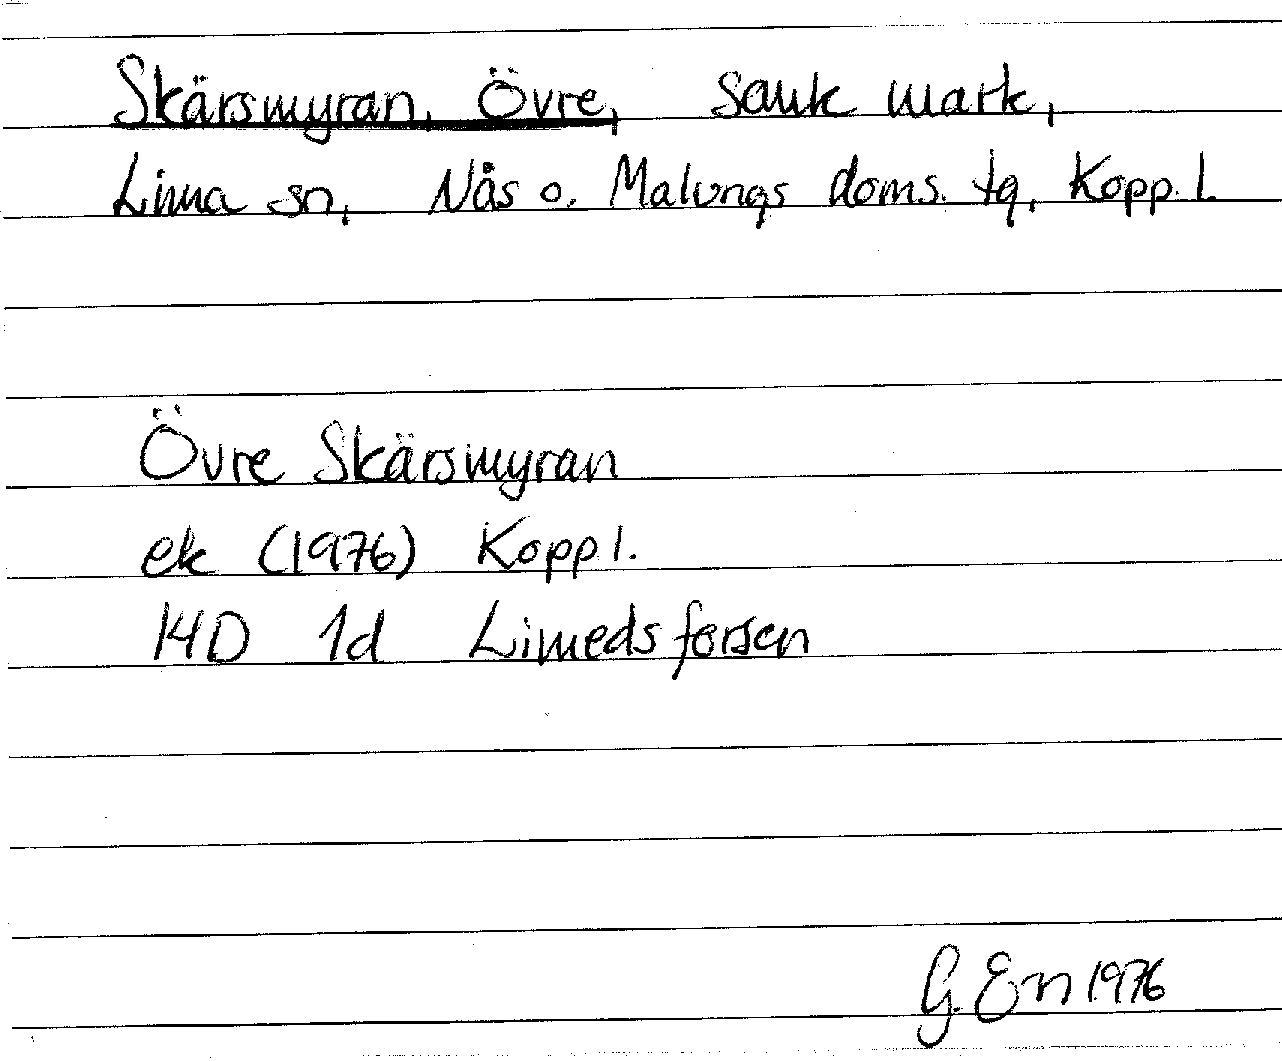 Skärsmyran, Övre, sank mark,
Lima sn, Nås o. Malungs doms. tg, Kopp. l.
Övre Skärsmyran
ek (1976) Kopp l.
14D 1d Limedsforsen
G. En 1976